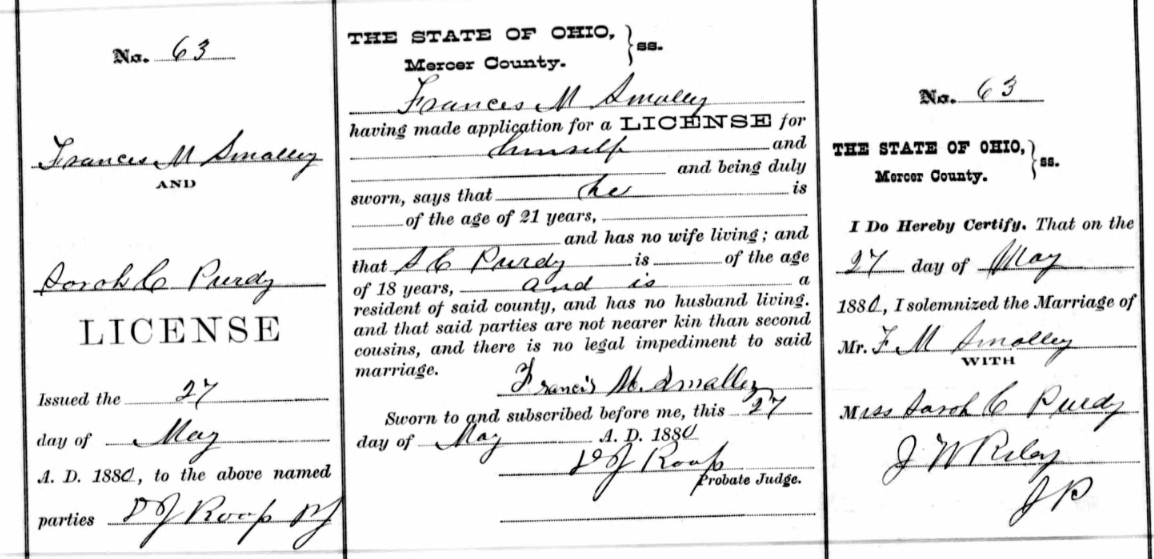 No. 63
Frances M Smalley
AND
Sarah C Purdy
LICENSE
Issued the 27
day of May
A. D. 1880, to the above named
parties Roop PJ
THE STATE OF OHIO, } ss.
Mercer County.
Frances M Smalley
having made application for a LICENSE for
himself and
and being duly
sworn, says that he is
of the age of 21 years,
and has no wife living; and
that S C Purdy is of the age
of 18 years, and is a
resident of said county, and has no husband living.
and that said parties are not nearer kin than second
cousins, and there is no legal impediment to said
marriage.
Francis M. Smalley
Sworn to and subscribed before me, this 27
day of May A. D. 1880
Roop
Probate Judge.
No. 63
THE STATE OF OHIO, } ss.
Mercer County.
I Do Hereby Certify, That on the
27 day of May
1880, I solemnized the Marriage of
Mr. F M Smalley
WITH
Miss Sarah C Purdy
J W Riley
J P